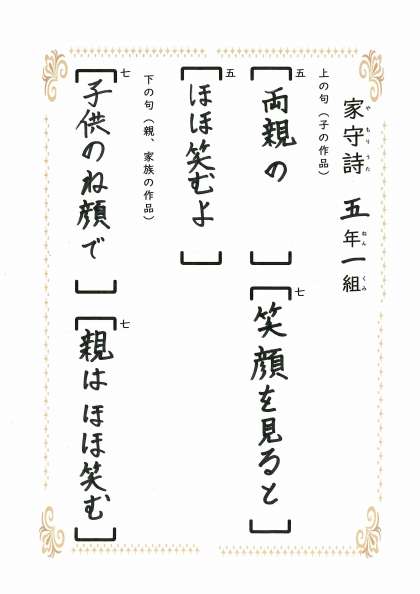 家守詩 五年一組
やもりうた ねん くみ
上の句（子の作品）
五
両親の
七
笑顔を見ると
五
ほほ笑むよ
下の句（親、家族の作品）
七
子供のね顔で
七
親はほほ笑む